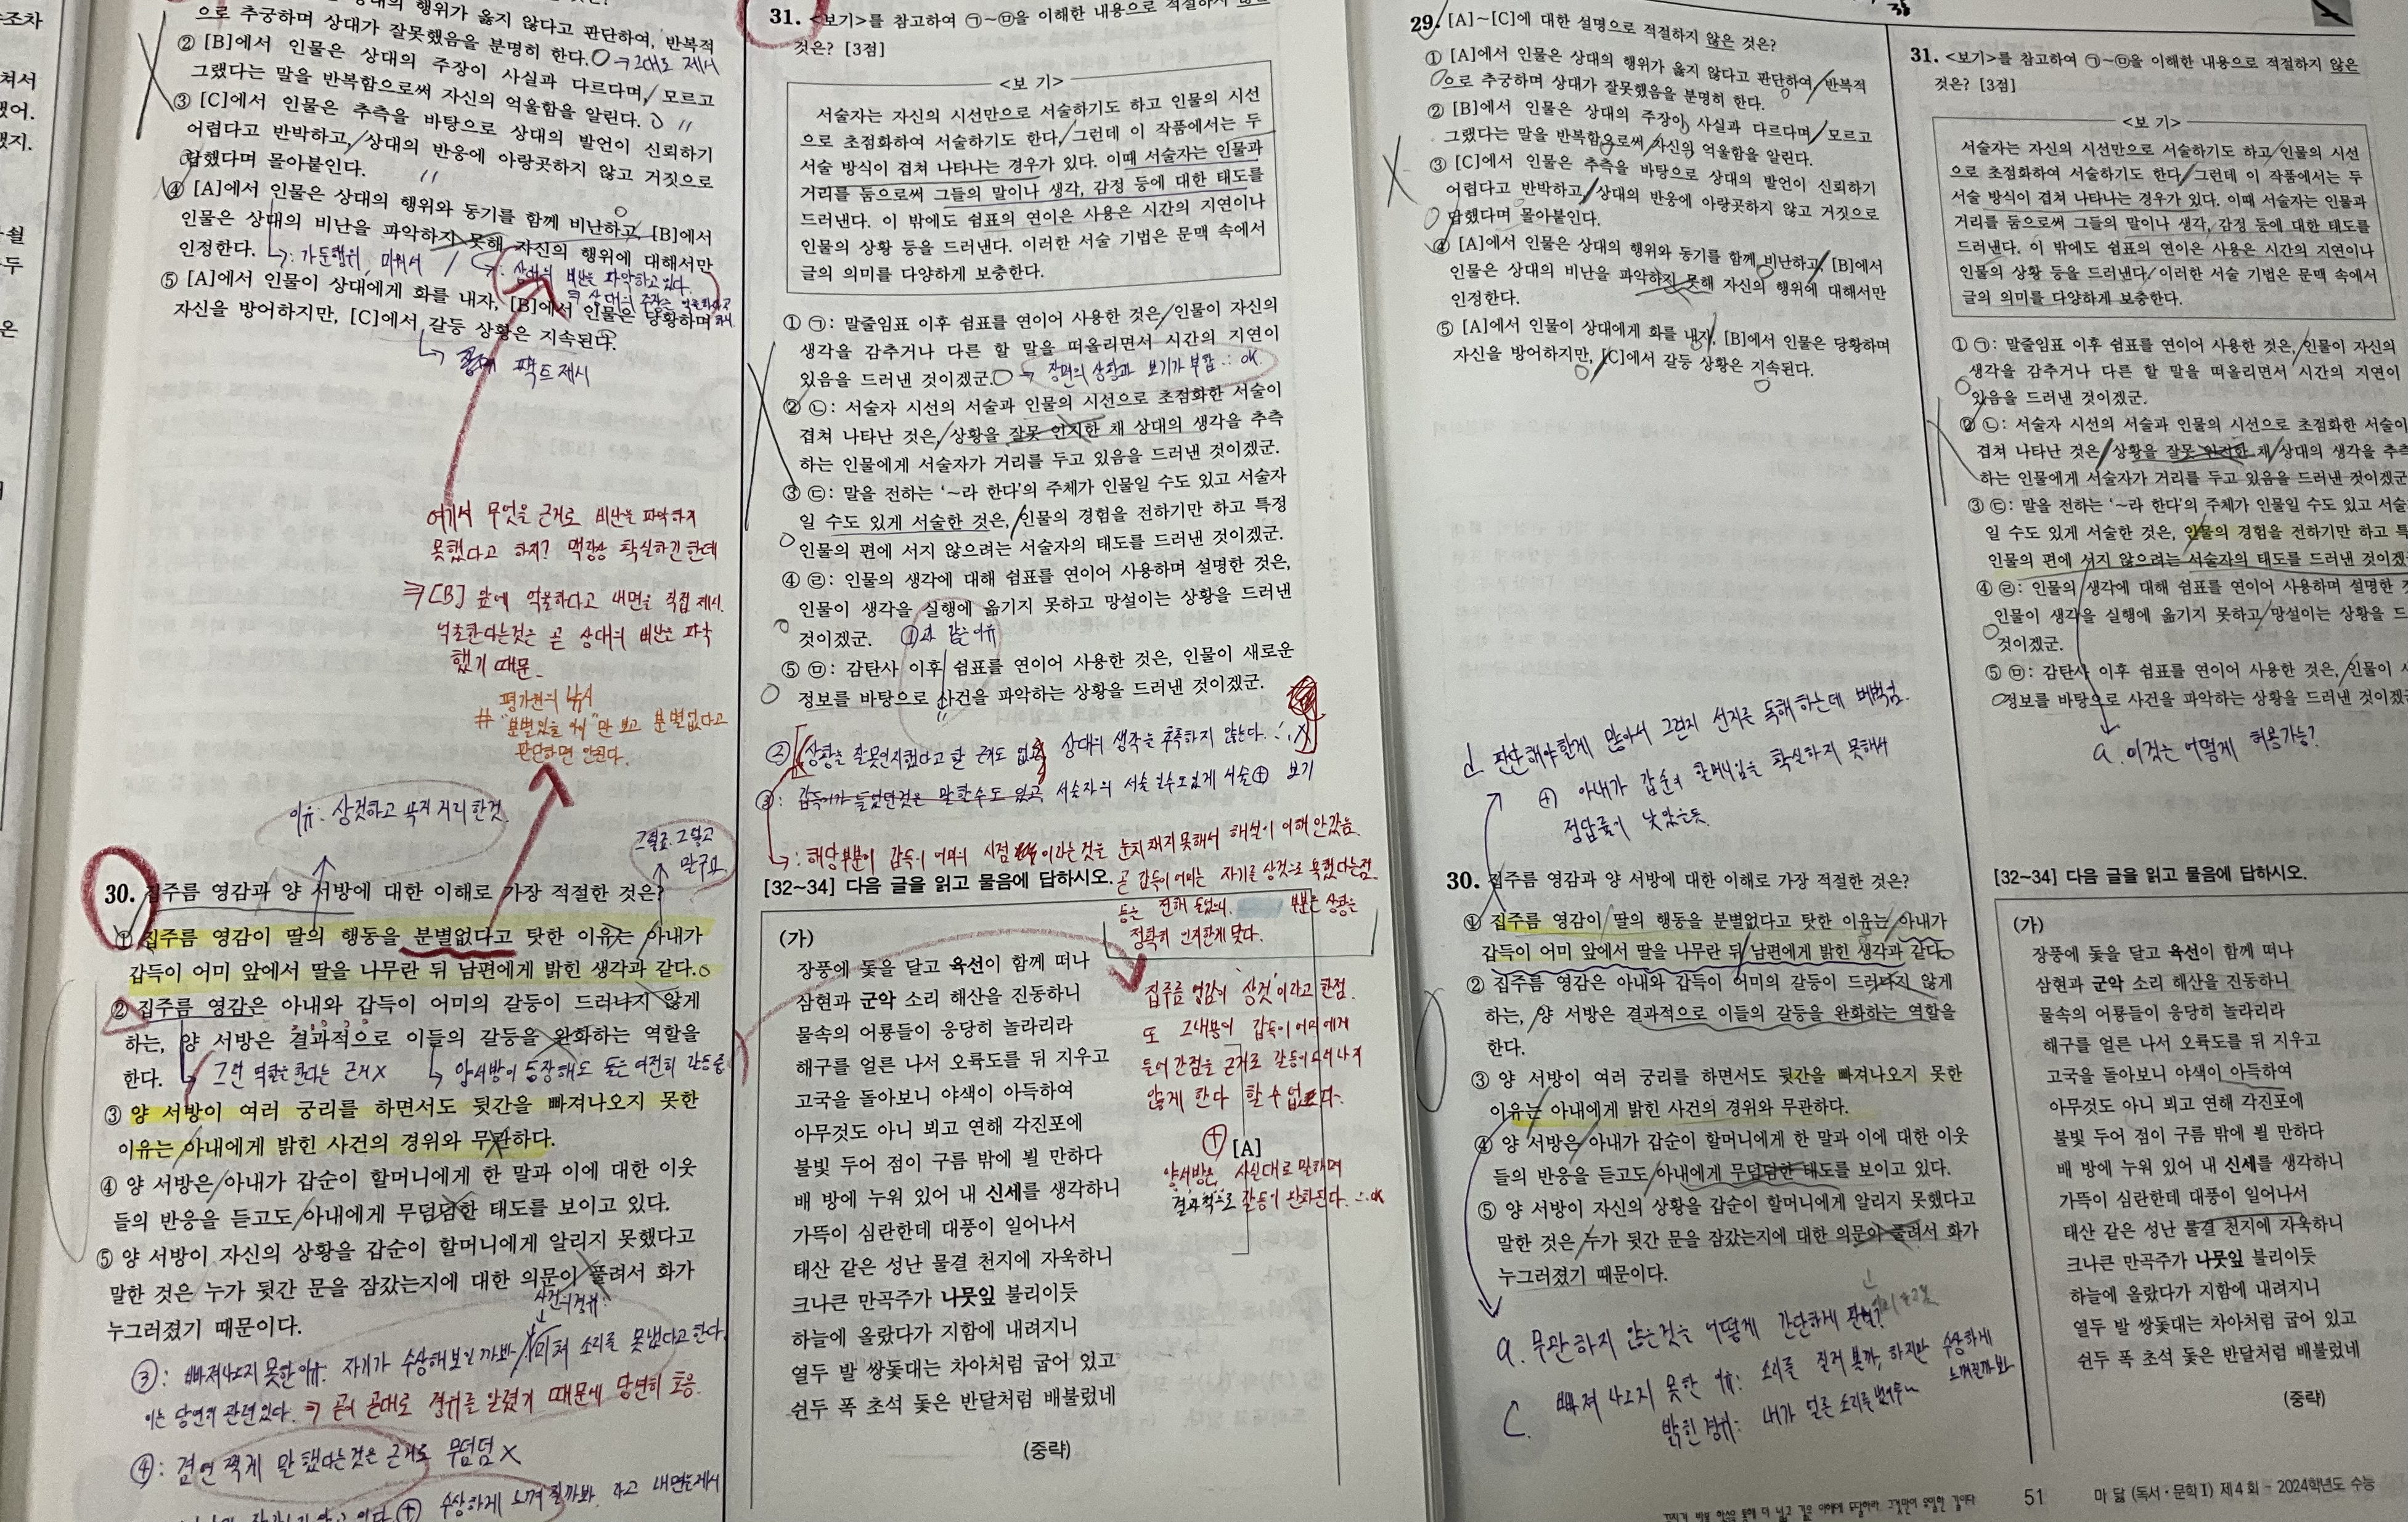 으로 추궁하며 상대가 잘못했음을 분명히 한다.
② [B]에서 인물은 상대의 주장이 사실과 다르다며, 모르고
그랬다는 말을 반복함으로써 자신의 억울함을 알린다.
③ [C]에서 인물은 추측을 바탕으로 상대의 발언이 신뢰하기
어렵다고 반박하고, 상대의 반응에 아랑곳하지 않고 거짓으로
답했다며 몰아붙인다.
④ [A]에서 인물은 상대의 행위와 동기를 함께 비난하고, [B]에서
인물은 상대의 비난을 파악하지 못해 자신의 행위에 대해서만
인정한다.
가둔행위, 미워서
상대의 비난을 파악하고 있다.
⑤ [A]에서 인물이 상대에게 화를 내자, [B]에서 인물은 당황하며
자신을 방어하지만, [C]에서 갈등 상황은 지속된다.
팩트 제시
여기서 무엇을 근거로 비난을 파악하지
못했다고 하지? 맥락상 확실하긴 한데
[B] 앞에 억울하다고 내면을 직접 제시.
억울한다는것은 곧 상대의 비난을 파악
했기 때문.
평가원의 낚시
# "분별있을 애"만 보고 분별없다고
판단하면 안된다.
이유: 상것하고 꼭지 거리 한것.
30. 집주름 영감과 양 서방에 대한 이해로 가장 적절한 것은?
① 집주름 영감이 딸의 행동을 분별없다고 탓한 이유는 아내가
갑득이 어미 앞에서 딸을 나무란 뒤 남편에게 밝힌 생각과 같다.
② 집주름 영감은 아내와 갑득이 어미의 갈등이 드러나지 않게
하는, 양 서방은 결과적으로 이들의 갈등을 완화하는 역할을
한다.
그런 역할을 한다는 근거 X
양서방이 등장해도 둘은 여전히 갈등중
③ 양 서방이 여러 궁리를 하면서도 뒷간을 빠져나오지 못한
이유는 아내에게 밝힌 사건의 경위와 무관하다.
④ 양 서방은 아내가 갑순이 할머니에게 한 말과 이에 대한 이웃
들의 반응을 듣고도 아내에게 무덤덤한 태도를 보이고 있다.
⑤ 양 서방이 자신의 상황을 갑순이 할머니에게 알리지 못했다고
말한 것은 누가 뒷간 문을 잠갔는지에 대한 의문이 풀려서 화가
누그러졌기 때문이다.
사건의 경위:
③: 빠져나오지 못한 이유: 자기가 수상해보일까봐 / 미처 소리를 못냈다고 한다.
이는 당연히 관련있다. → 곧이 곧대로 경위를 알렸기 때문에 당연히 호응.
④: 겸연쩍게 말했다는것은 근거로 무덤덤 X
31. <보기>를 참고하여 ㉠~㉤을 이해한 내용으로 적절하지 않은
것은? [3점]
<보 기>
서술자는 자신의 시선만으로 서술하기도 하고 인물의 시선
으로 초점화하여 서술하기도 한다. 그런데 이 작품에서는 두
서술 방식이 겹쳐 나타나는 경우가 있다. 이때 서술자는 인물과
거리를 둠으로써 그들의 말이나 생각, 감정 등에 대한 태도를
드러낸다. 이 밖에도 쉼표의 연이은 사용은 시간의 지연이나
인물의 상황 등을 드러낸다. 이러한 서술 기법은 문맥 속에서
글의 의미를 다양하게 보충한다.
① ㉠: 말줄임표 이후 쉼표를 연이어 사용한 것은, 인물이 자신의
생각을 감추거나 다른 할 말을 떠올리면서 시간의 지연이
있음을 드러낸 것이겠군.
장면의 상황과 보기가 부합 ∴ ok.
② ㉡: 서술자 시선의 서술과 인물의 시선으로 초점화한 서술이
겹쳐 나타난 것은, 상황을 잘못 인지한 채 상대의 생각을 추측
하는 인물에게 서술자가 거리를 두고 있음을 드러낸 것이겠군.
③ ㉢: 말을 전하는 '~라 한다'의 주체가 인물일 수도 있고 서술자
일 수도 있게 서술한 것은, 인물의 경험을 전하기만 하고 특정
인물의 편에 서지 않으려는 서술자의 태도를 드러낸 것이겠군.
④ ㉣: 인물의 생각에 대해 쉼표를 연이어 사용하며 설명한 것은,
인물이 생각을 실행에 옮기지 못하고 망설이는 상황을 드러낸
것이겠군.
①과 같은 이유
⑤ ㉤: 감탄사 이후 쉼표를 연이어 사용한 것은, 인물이 새로운
정보를 바탕으로 사건을 파악하는 상황을 드러낸 것이겠군.
② 상황을 잘못인지했다고 할 근거도 없고 상대의 생각을 추측하지 않는다. ∴ X
: 해당부분이 갑득이 어미의 시점 이라는 것을 눈치채지 못해서 해설이 이해 안갔음.
곧 갑득이 어미는 자기를 상것으로 욕했다는점
등을 전해 들었으니 부분은 상황을
정확히 인지한게 맞다.
[32~34] 다음 글을 읽고 물음에 답하시오.
(가)
장풍에 돛을 달고 육선이 함께 떠나
삼현과 군악 소리 해산을 진동하니
물속의 어룡들이 응당히 놀라리라
해구를 얼른 나서 오륙도를 뒤 지우고
고국을 돌아보니 야색이 아득하여
아무것도 아니 뵈고 연해 각진포에
불빛 두어 점이 구름 밖에 뵐 만하다
배 방에 누워 있어 내 신세를 생각하니
가뜩이 심란한데 대풍이 일어나서
태산 같은 성난 물결 천지에 자욱하니
크나큰 만곡주가 나뭇잎 불리이듯
하늘에 올랐다가 지함에 내려지니
열두 발 쌍돛대는 차아처럼 굽어 있고
쉰두 폭 초석 돛은 반달처럼 배불렀네
(중략)
[A]
집주름 영감이 '상것'이라고 한점.
또 그내용이 갑득이 어미에게
들어간점을 근거로 갈등이 드러나지
않게 한다 할 수 없다.
양서방은 사실대로 말하며
결과적으로 갈등이 완화된다. ∴ ok
29. [A]~[C]에 대한 설명으로 적절하지 않은 것은?
① [A]에서 인물은 상대의 행위가 옳지 않다고 판단하여, 반복적
으로 추궁하며 상대가 잘못했음을 분명히 한다.
② [B]에서 인물은 상대의 주장이 사실과 다르다며, 모르고
그랬다는 말을 반복함으로써 자신의 억울함을 알린다.
③ [C]에서 인물은 추측을 바탕으로 상대의 발언이 신뢰하기
어렵다고 반박하고, 상대의 반응에 아랑곳하지 않고 거짓으로
답했다며 몰아붙인다.
④ [A]에서 인물은 상대의 행위와 동기를 함께 비난하고, [B]에서
인물은 상대의 비난을 파악하지 못해 자신의 행위에 대해서만
인정한다.
⑤ [A]에서 인물이 상대에게 화를 내자, [B]에서 인물은 당황하며
자신을 방어하지만, [C]에서 갈등 상황은 지속된다.
d. 판단해야할게 많아서 그런지 선지를 독해하는데 버벅임.
⊕ 아내가 갑순이 할머니임을 확실하지 못해서
정답률이 낮았는듯.
30. 집주름 영감과 양 서방에 대한 이해로 가장 적절한 것은?
① 집주름 영감이 딸의 행동을 분별없다고 탓한 이유는 아내가
갑득이 어미 앞에서 딸을 나무란 뒤 남편에게 밝힌 생각과 같다.
② 집주름 영감은 아내와 갑득이 어미의 갈등이 드러나지 않게
하는, 양 서방은 결과적으로 이들의 갈등을 완화하는 역할을
한다.
③ 양 서방이 여러 궁리를 하면서도 뒷간을 빠져나오지 못한
이유는 아내에게 밝힌 사건의 경위와 무관하다.
④ 양 서방은 아내가 갑순이 할머니에게 한 말과 이에 대한 이웃
들의 반응을 듣고도 아내에게 무덤덤한 태도를 보이고 있다.
⑤ 양 서방이 자신의 상황을 갑순이 할머니에게 알리지 못했다고
말한 것은 누가 뒷간 문을 잠갔는지에 대한 의문이 풀려서 화가
누그러졌기 때문이다.
a. 무관하지 않은것을 어떻게 간단하게 판단?
C. 빠져 나오지 못한 이유: 소리를 질러 볼까, 하지만 수상하게 느껴질까봐
밝힌 경위: 내가 얼른 소리를
31. <보기>를 참고하여 ㉠~㉤을 이해한 내용으로 적절하지 않은
것은? [3점]
<보 기>
서술자는 자신의 시선만으로 서술하기도 하고 인물의 시선
으로 초점화하여 서술하기도 한다. 그런데 이 작품에서는 두
서술 방식이 겹쳐 나타나는 경우가 있다. 이때 서술자는 인물과
거리를 둠으로써 그들의 말이나 생각, 감정 등에 대한 태도를
드러낸다. 이 밖에도 쉼표의 연이은 사용은 시간의 지연이나
인물의 상황 등을 드러낸다. 이러한 서술 기법은 문맥 속에서
글의 의미를 다양하게 보충한다.
① ㉠: 말줄임표 이후 쉼표를 연이어 사용한 것은, 인물이 자신의
생각을 감추거나 다른 할 말을 떠올리면서 시간의 지연이
있음을 드러낸 것이겠군.
② ㉡: 서술자 시선의 서술과 인물의 시선으로 초점화한 서술이
겹쳐 나타난 것은, 상황을 잘못 인지한 채 상대의 생각을 추측
하는 인물에게 서술자가 거리를 두고 있음을 드러낸 것이겠군
③ ㉢: 말을 전하는 '~라 한다'의 주체가 인물일 수도 있고 서술
일 수도 있게 서술한 것은, 인물의 경험을 전하기만 하고 특
인물의 편에 서지 않으려는 서술자의 태도를 드러낸 것이겠
④ ㉣: 인물의 생각에 대해 쉼표를 연이어 사용하며 설명한
인물이 생각을 실행에 옮기지 못하고 망설이는 상황을 드
것이겠군.
⑤ ㉤: 감탄사 이후 쉼표를 연이어 사용한 것은, 인물이
정보를 바탕으로 사건을 파악하는 상황을 드러낸 것이겠
a. 이것은 어떻게 허용가능?
[32~34] 다음 글을 읽고 물음에 답하시오.
(가)
장풍에 돛을 달고 육선이 함께 떠나
삼현과 군악 소리 해산을 진동하니
물속의 어룡들이 응당히 놀라리라
해구를 얼른 나서 오륙도를 뒤 지우고
고국을 돌아보니 야색이 아득하여
아무것도 아니 뵈고 연해 각진포에
불빛 두어 점이 구름 밖에 뵐 만하다
배 방에 누워 있어 내 신세를 생각하니
가뜩이 심란한데 대풍이 일어나서
태산 같은 성난 물결 천지에 자욱하니
크나큰 만곡주가 나뭇잎 불리이듯
하늘에 올랐다가 지함에 내려지니
열두 발 쌍돛대는 차아처럼 굽어 있고
쉰두 폭 초석 돛은 반달처럼 배불렀네
(중략)
51 마 닳 (독서·문학Ⅰ) 제4회 - 2024학년도 수능